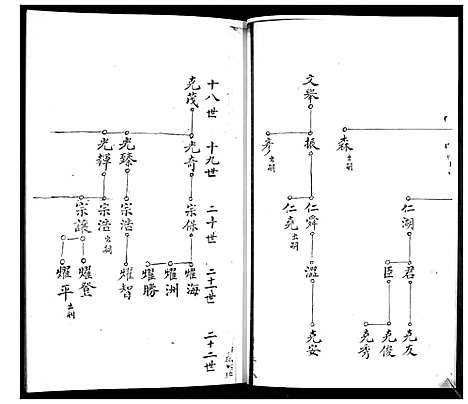 森 出嗣
仁湖
君
臣
克友
克俊
克秀
文舉
振
彥 出嗣
仁舜
仁克 出嗣
溫
克安
十八世
十九世
二十世
二十一世
二十二世
克茂
光奇
光臻
光輝
宗保
宗浩
宗浩 出嗣
宗讓
耀海
耀洲
耀勝
耀智
耀登
耀平 出嗣